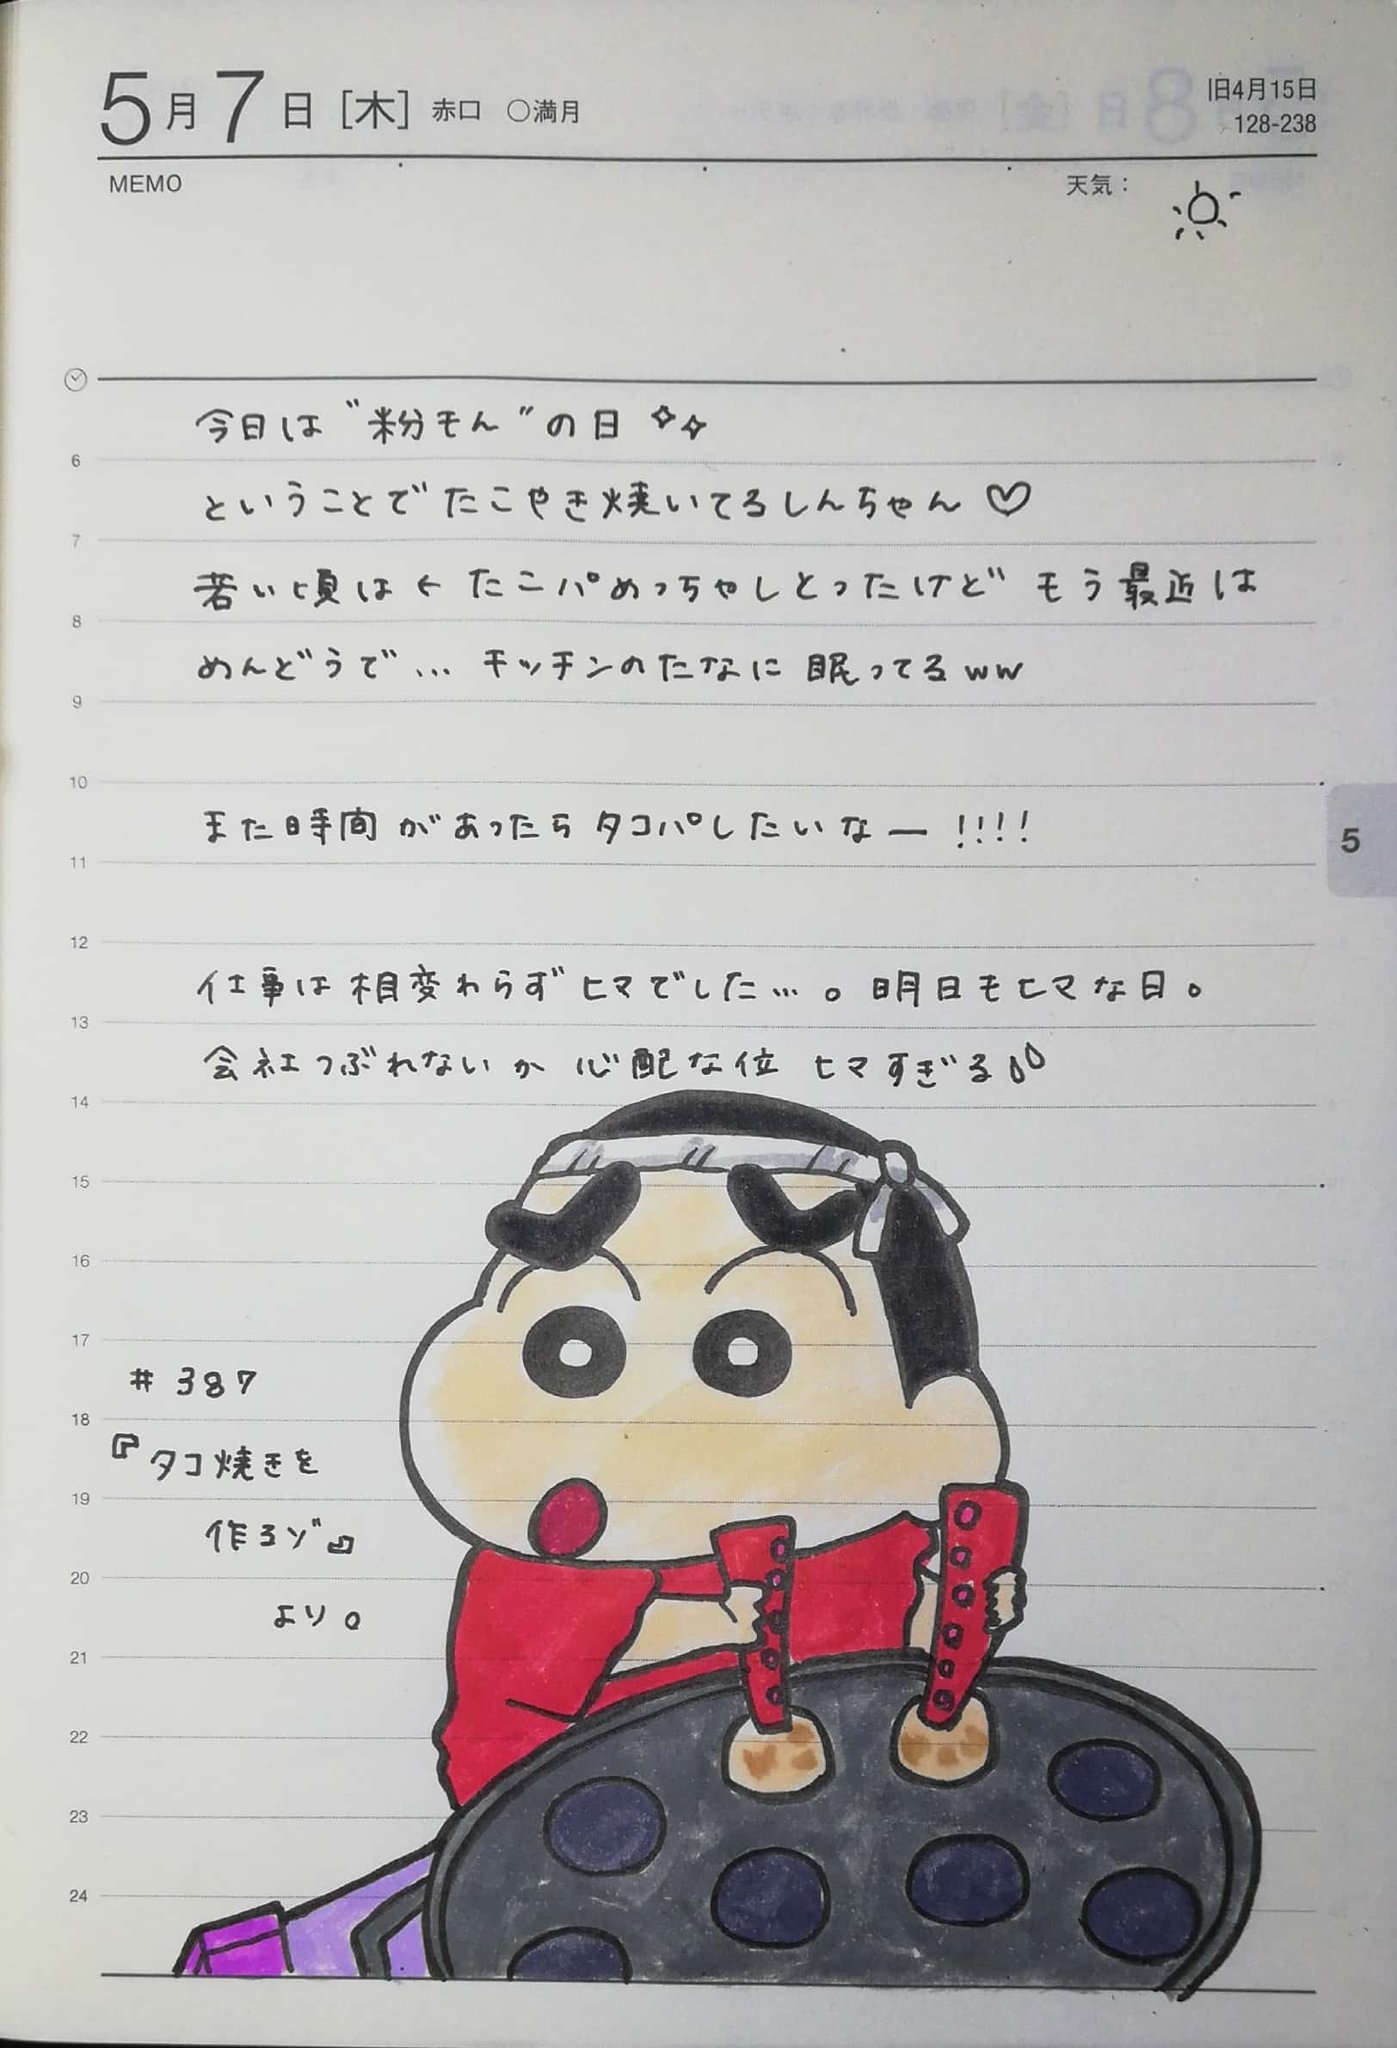 5月7日 [木] 赤口 ○満月
旧4月15日
128-238
MEMO
天気：
今日は“粉もん”の日
6
ということでたこやき焼いてるしんちゃん♡
7
若い頃は←たこパめっちゃしとったけど もう最近は
8
めんどうで… キッチンのたなに眠ってるww
9
10
また時間があったらタコパしたいなー!!!!
11
5
12
仕事は相変わらずヒマでした…。明日もヒマな日。
13
会社つぶれないか心配な位 ヒマすぎる
14
15
16
17
#387
18
『タコ焼きを
19
作るゾ』
20
より。
21
22
23
24